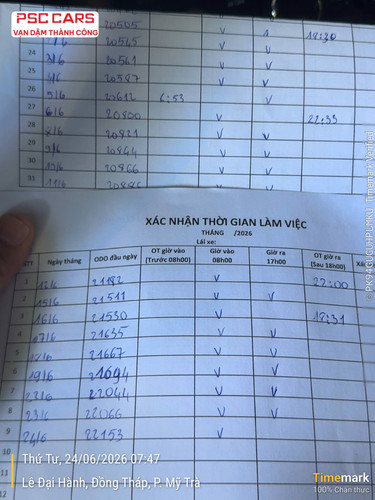 PSC CARS
VẠN DẶM THÀNH CÔNG
20505 V 1 18:30
24 2/6 20545 V V
3/6 20561 V V
4/6 20587 V V
5/6 20612 6:53 V
27 6/6 20800 V 22:33
28 20821 V V
29 9/6 20864 V V
30 20866 V V
31 11/6 20886
XÁC NHẬN THỜI GIAN LÀM VIỆC
THÁNG /2026
Lái xe:
STT Ngày tháng ODO đầu ngày OT giờ vào (Trước 08h00) Giờ vào 08h00 Giờ ra 17h00 OT giờ ra (Sau 18h00) Xác
1 12/6 21182 V 22:00
2 15/6 21511 V V
3 16/6 21530 V 18:31
4 17/6 21635 V V
5 18/6 21667 V V
6 19/6 21694 V V
7 22/6 22044 V V
8 23/6 22066 V V
9 24/6 22153 V
10
11
12
Thứ Tư, 24/06/2026 07:47
Lê Đại Hành, Đồng Tháp, P. Mỹ Trà
Timemark
100% Chân thực
Timemark Verified